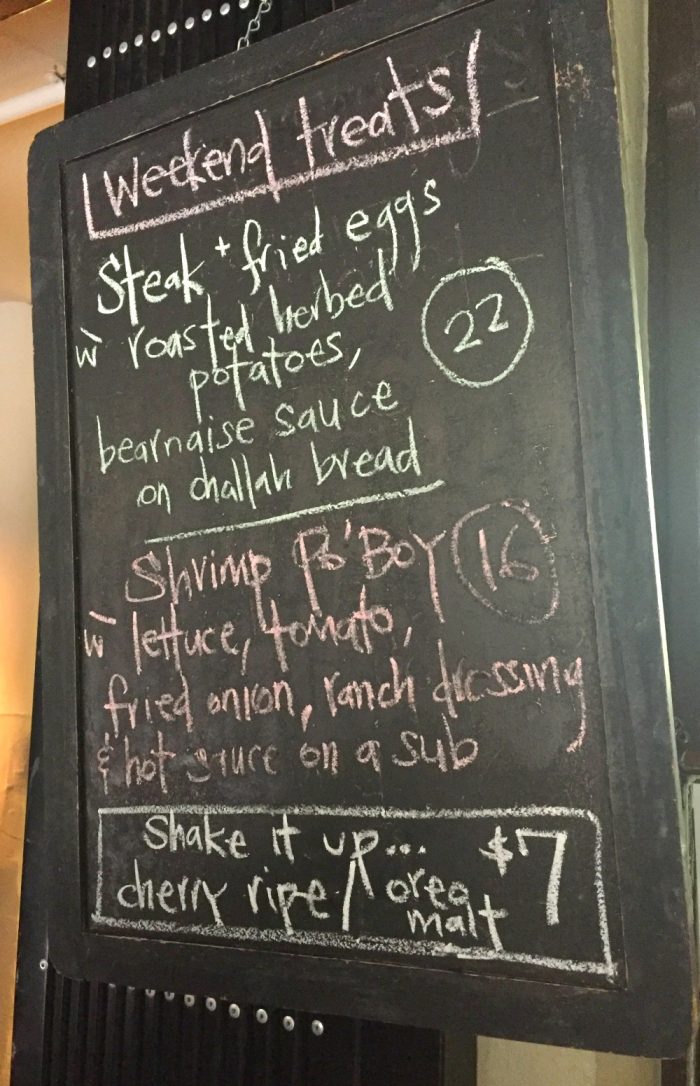 Weekend treats
Steak + fried eggs
w/ roasted herbed
potatoes,
22
bearnaise sauce
on challah bread
Shrimp Po'Boy
16
w/ lettuce, tomato,
fried onion, ranch dressing
& hot sauce on a sub
Shake it up...
cherry ripe / oreo
malt
$7